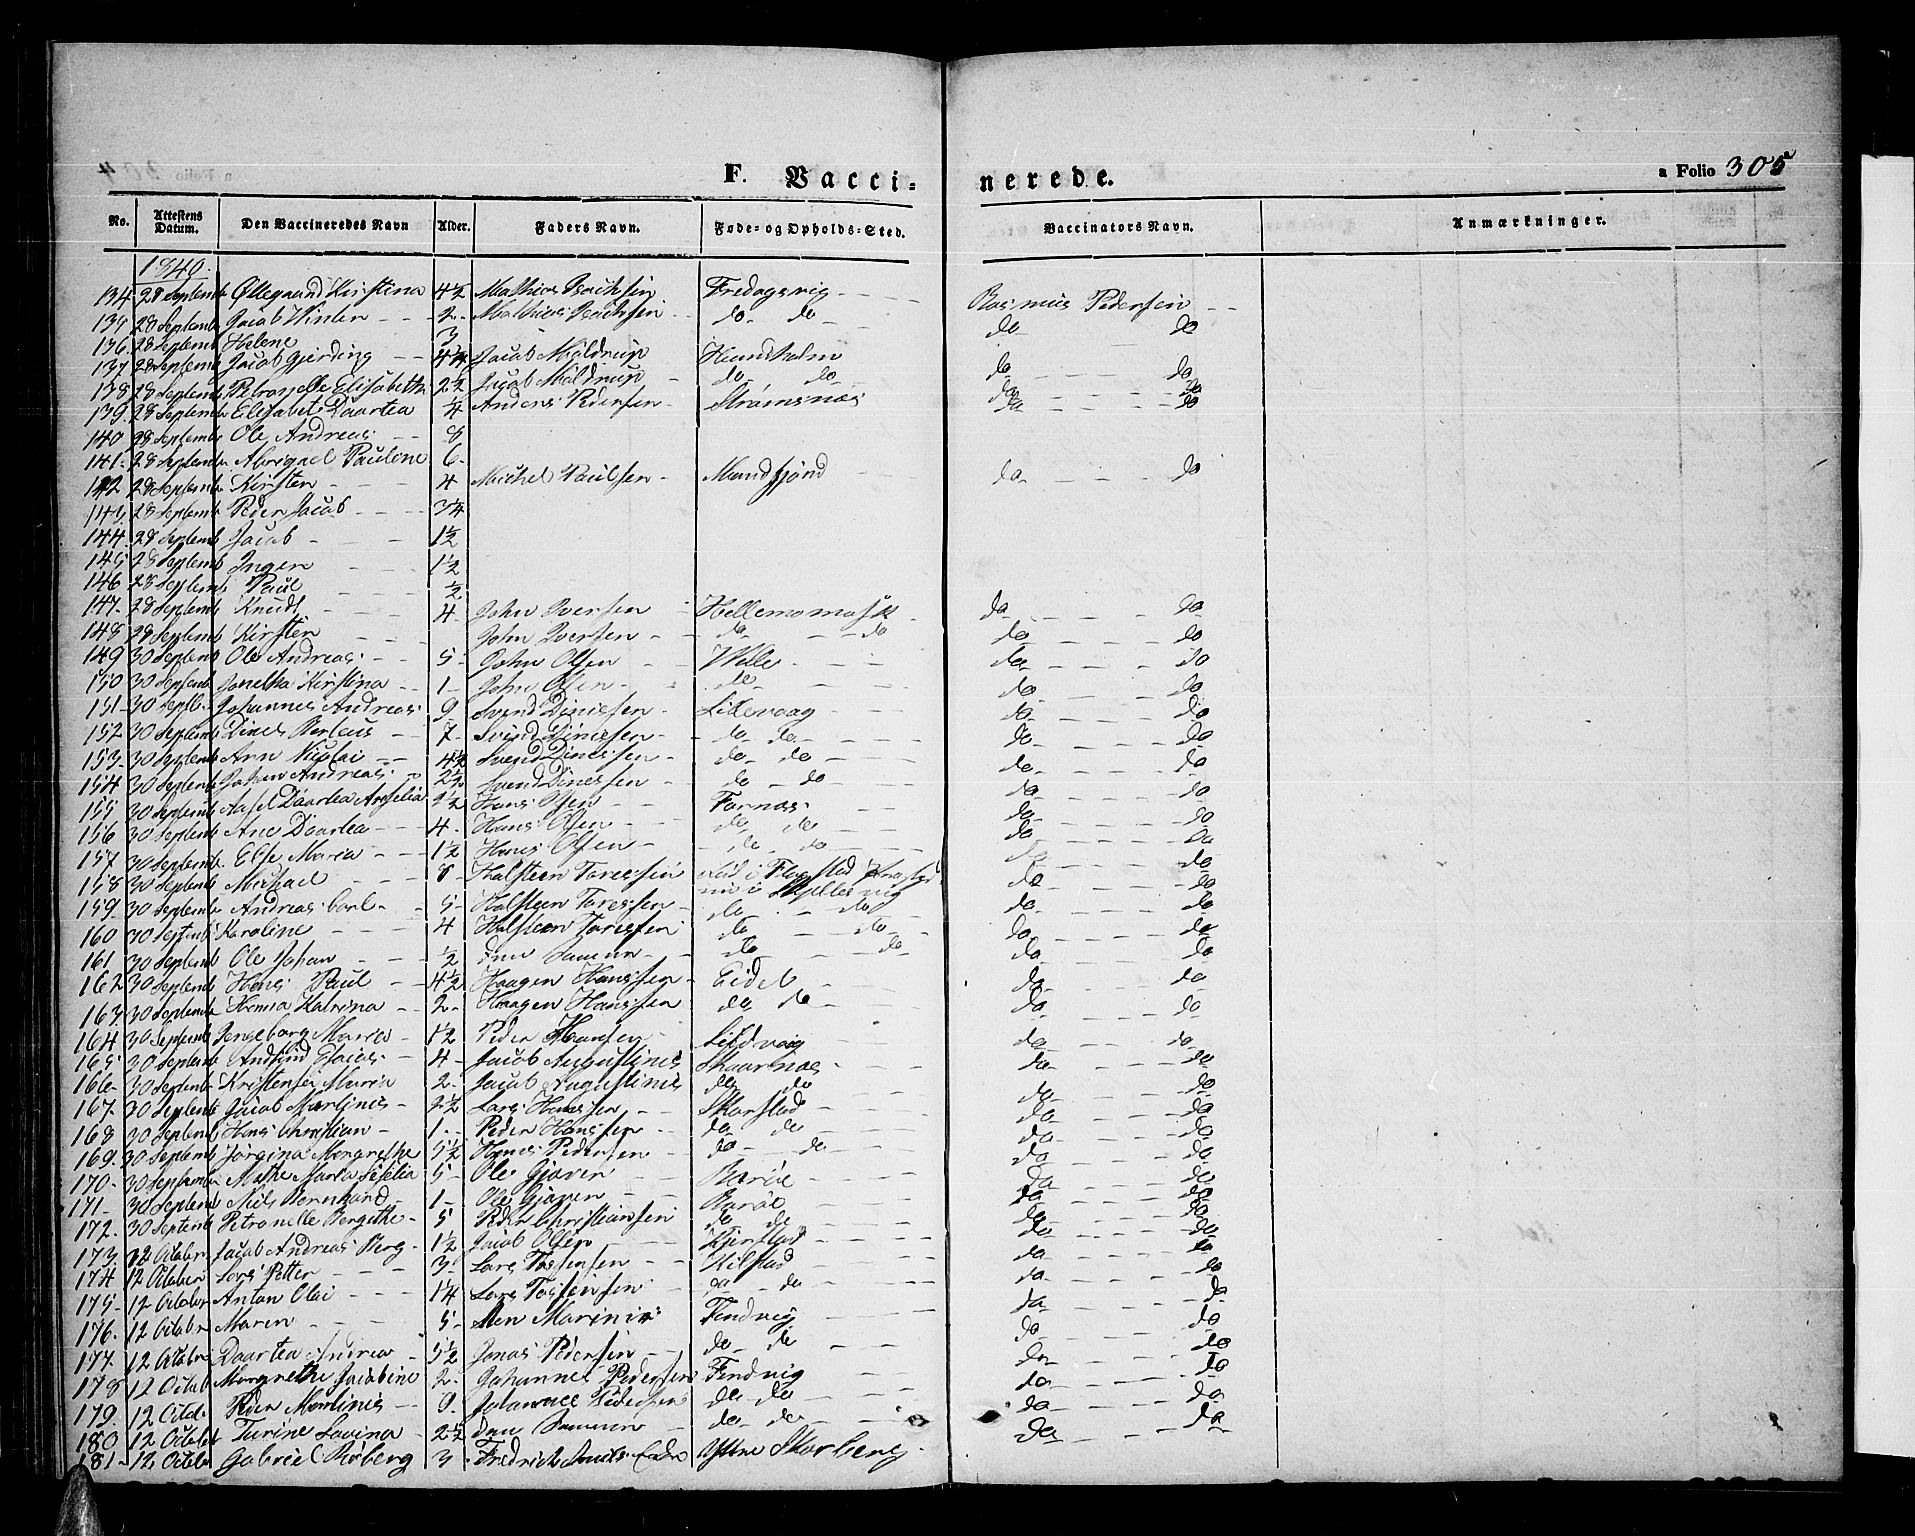 F. Vacci-nerede.
a Folio 305
No. Attestens Datum. Den Vaccineredes Navn Alder. Faders Navn. Føde- og Opholds-Sted. Vaccinators Navn. Anmærkninger.
1840.
134 28 Septemb Øllegaard Kirstina 4½ Mathias Isachsen Fredagsvig Rasmus Pedersen
135 28 Septemb Jacob Winter 2 Mathias Isachsen do do do do
136 28 Septemb Helene 3
137 28 Septemb Jacob Gjerding 4¼ Jacob Moldrup Hundholm do do
138 28 Septemb Petronelle Elisabeth 2½ Jacob Moldrup do do do do
139 28 Septemb Elisabet Daartea ¼ Anders Pedersen Strømsnæs do do
140 28 Septemb Ole Andreas 8
141 28 Septemb Abigael Pauline 6
142 28 Septemb Kirsten 4 Michel Paulsen Mandfjord do do
143 28 Septemb Peder Jacob 3¼
144 28 Septemb Jacob 1½
145 28 Septemb Inger 1½
146 28 Septemb Paul ½
147 28 Septemb Knudt 4 John Iversen Hellemomask do do
148 28 Septemb Kirsten John Iversen do do do do
149 30 Septemb Ole Andreas 5 John Olsen Welle do do
150 30 Septemb Janetha Kirstina 1 John Olsen do do do
151 30 Septb Johannes Andreas 9 Svend Dinesen Lillevaag do do
152 30 Septemb Dines Perteus 7 Svend Dinesen do do do do
153 30 Septemb Arn Nicolai 4½ Svend Dinessen do do do do
154 30 Septemb Johan Andreas 2½ Svend Dinessen do do do do
155 30 Septemb Axsel Daartea Amselia 2½ Hans Olsen Tornæs do do
156 30 Septemb Ane Daartea 4 Hans Olsen do do do do
157 30 Septemb Else Maria 1½ Hans Olsen do do do do
158 30 Septemb Michael 8 Halsteen Toressen i Flagstad nu i Skjellesvig do do
159 30 Septemb Andreas Carl 5 Halsteen Toressen do do do do
160 30 Septemb Karoline 4 Halsteen Toressen do do do do
161 30 Septemb Ole Johan ½ den Samme do do do do
162 30 Septemb Hans Paul 4½ Haagen Hanssen Eidet do do
163 30 Septemb Hanna Katrina 2 Haagen Hanssen do do do do
164 30 Septemb Ingeborg Maria 1½ Peder Hansen Lillevaag do do
165 30 Septemb 4 Jacob Augustinis Skaarnæs do do
166 30 Septemb Kristense Maria 2 Jacob Augustinis do do do do
167 30 Septemb Jacob Martinis 2½ Lars Hanssen Skarstad do do
168 30 Septemb Hans Christian 1 Peder Hanssen do do do do
169 30 Septemb Jørgina Margrethe 5½ Hans Pedersen do do do do
170 30 Septemb Mathe Maria Sesilia 5 Ole Gjæver Barøe do do
171 30 Septemb Niels Bernhard 1 Ole Gjæver Barøe do do
172 30 Septemb Petronelle Bergithe 5 Peder Christiansen do do do do
173 12 Octobr Jacob Andreas Berg 1½ Jacob Olsen Kjerstad do do
174 12 Octobr Lars Petter 3 Lars Tostensen Kilstad do do
175 12 Octobr Antan Olai 1¼ Lars Tostensen do do do do
176 12 Octobr Maren 5 Marinis Fendvig do do
177 12 Octobr Daartea Andrea 5½ Jonas Pedersen do do do do
178 12 Octob Margrethe Jacobine 2 Johannes Pedersen Fendvig do do
179 12 Octob Peder Martinis 9 Johannes Pedersen do do do do
180 12 Octobr Turine Lovina 2½ den Samme do do do do
181 12 Octobr Gabriel Røberg 3 Fredrich Yttre Skarberg